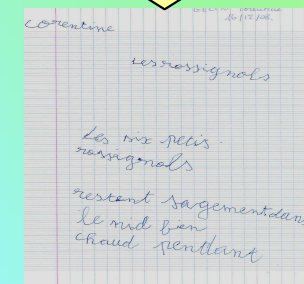 corentine
Les rossignols
Les six petis
rossignols
restent sagement dans
le nid bien
chaud pendant